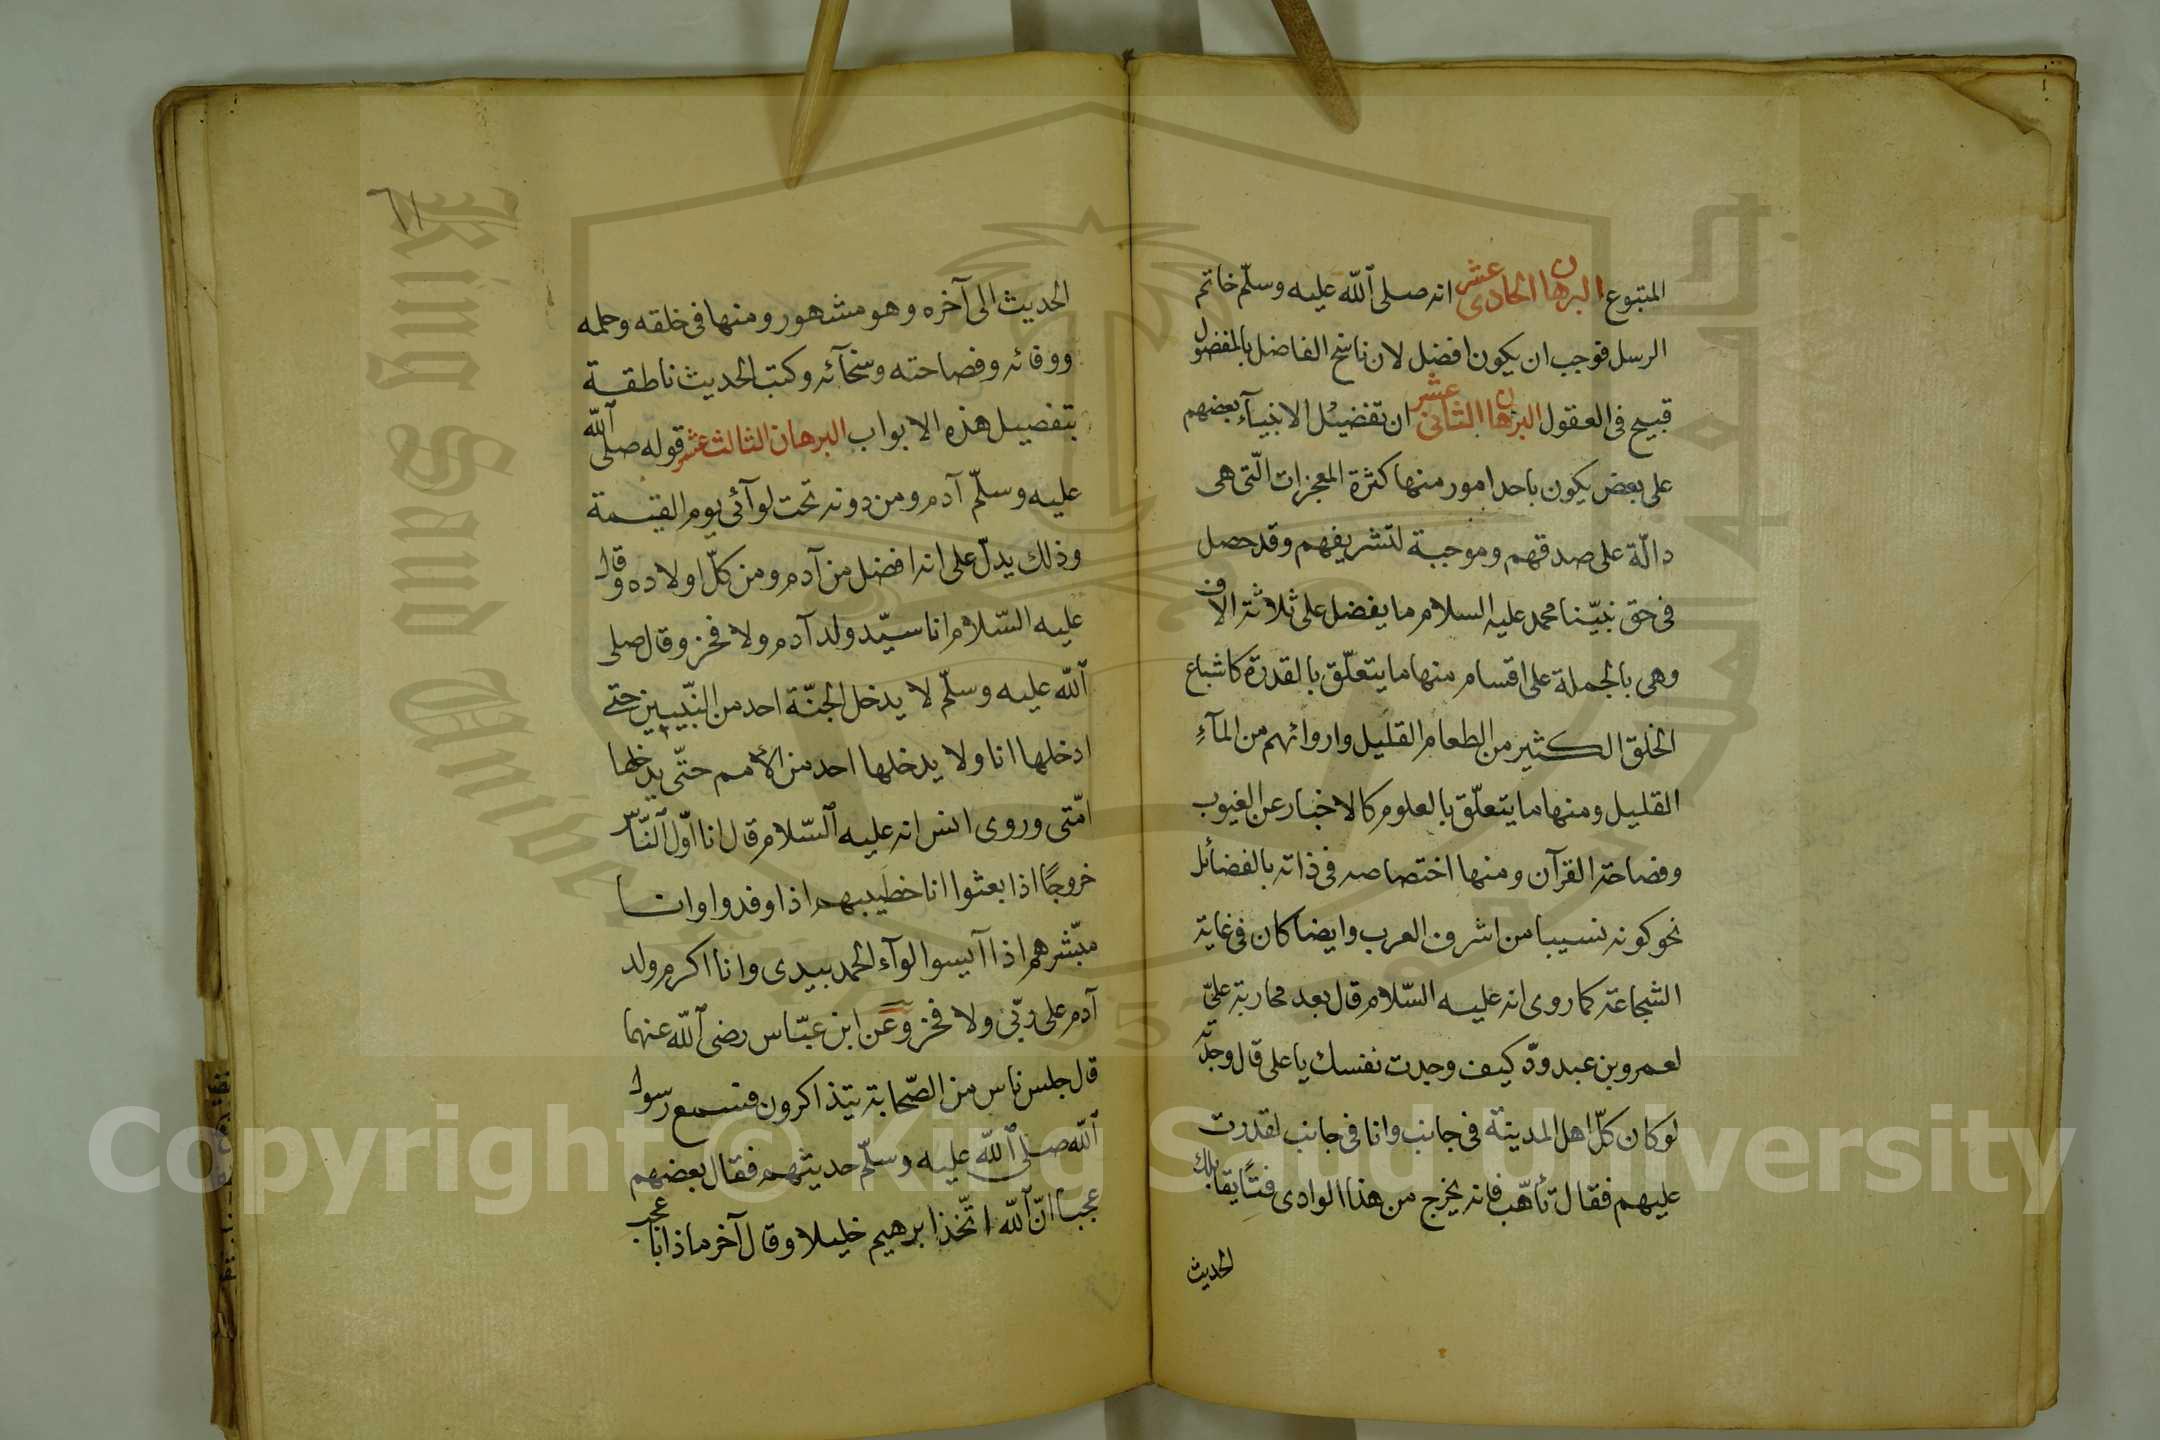 المتبوع البرهان الحادى عشر انه صلى الله عليه وسلّم خاتم
الرسل فوجب ان يكون افضل لان ناسخ الفاضل بالمفضول
قبيح فى العقول البرهان الثانى عشر ان تفضيل الانبيآء بعضهم
على بعض يكون باحد امور منها كثرة المعجزات الّتى هى
دالّة على صدقهم وموجبة لتشريفهم وقد حصل
فى حق نبيّنا محمد عليه السلام ما يفضل على ثلاثة الاف
وهى بالجملة على اقسام منها ما يتعلّق بالقدرة كاشباع
الخلق الكثير من الطعام القليل واروائهم من المآء
القليل ومنها ما يتعلّق بالعلوم كالاخبار عن الغيوب
وفصاحة القرآن ومنها اختصاصه فى ذاته بالفضائل
نحو كونه نسيبا من اشرف العرب وايضا كان فى غاية
الشجاعة كما روى انه عليه السّلام قال بعد محاربة علىّ
لعمرو بن عبد ودّ كيف وجدت نفسك يا على قال وجدته
لو كان كلّ اهل المدينة فى جانب وانا فى جانب لقدرت
عليهم فقال تأهّب فانه يخرج من هذا الوادى فتًا يقابلك
الحديث
٦١
الحديث الى آخره وهو مشهور ومنها فى خلقه وحلمه
ووفائه وفصاحته وسخآئه وكتب الحديث ناطقة
بتفصيل هذه الابواب البرهان الثالث عشر قوله صلى الله
عليه وسلّم آدم ومن دونه تحت لوآئى يوم القيمة
وذلك يدلّ على انه افضل من آدم ومن كلّ اولاده وقال
عليه السّلام انا سيّد ولد آدم ولا فخر وقال صلى
الله عليه وسلّم لا يدخل الجنّة احد من النّبيين حتى
ادخلها انا ولا يدخلها احد من الأمم حتّى يدخلها
امّتى وروى انس انه عليه السّلام قال انا اوّل النّاس
خروجًا اذا بعثوا انا خطيبهم اذا وفدوا وانا
مبّشرهم اذا آيسوا لوآء الحمد بيدى وانا اكرم ولد
آدم على ربّى ولا فخر وعن ابن عبّاس رضى الله عنهما
قال جلس ناس من الصّحابة يتذاكرون فسمع رسول
الله صلى الله عليه وسلّم حديثهم فقال بعضهم
عجبا انّ الله اتّخذ ابرهيم خليلا وقال آخر ماذا باعجب
King Saud University
Copyright © King Saud University